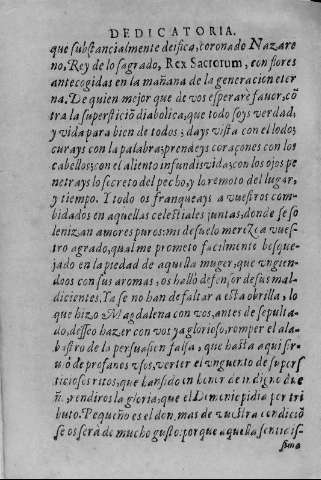 DEDICATORIA.
que substancialmente deifica, coronado Nazare
no, Rey de lo sagrado, Rex Sacrorum, con flores
antecogidas en la mañana de la generacion eter
na. De quien mejor que de vos esperarè fauor, cõ
tra la supersticiõ diabolica, que todo soys verdad,
y vida para bien de todos; days vista con el lodo;
curays con la palabra; prendeys coraçones con los
cabellos; con el aliento infundis vida; con los ojos pe
netrays lo secreto del pecho, y lo remoto del lugar,
y tiempo. I todo os franqueays a vuestros com-
bidados en aquellas celestiales juntas, donde se so
lenizan amores puros: mi desuelo merezca vues-
tro agrado, qual me prometo facilmente bosque-
jado en la piedad de aquella muger, que vngien-
doos con sus aromas, os hallò defensor de sus mal-
dicientes. Ya se no han de faltar a esta obrilla, lo
que hizo Magdalena con vos, antes de sepulta-
do, desseo hazer con vos ya glorioso, romper el ala-
bastro de la persuasion falsa, que hasta aqui sir-
uiò de profanos vsos, verter el vnguento de supers
ticiosos ritos, que han sido en honor de indigno due
ñ, rendiros la gloria, que el Demonio pidia por tri
buto. Pequeño es el don, mas de vuestra condiciõ
se os serà de mucho gusto: porque aquella
sima